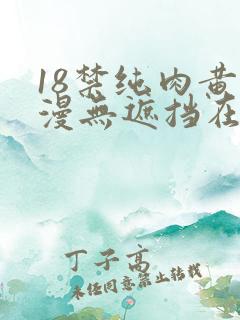 18禁纯肉黄
漫無遮挡在
丁子高
未经同意禁止转载